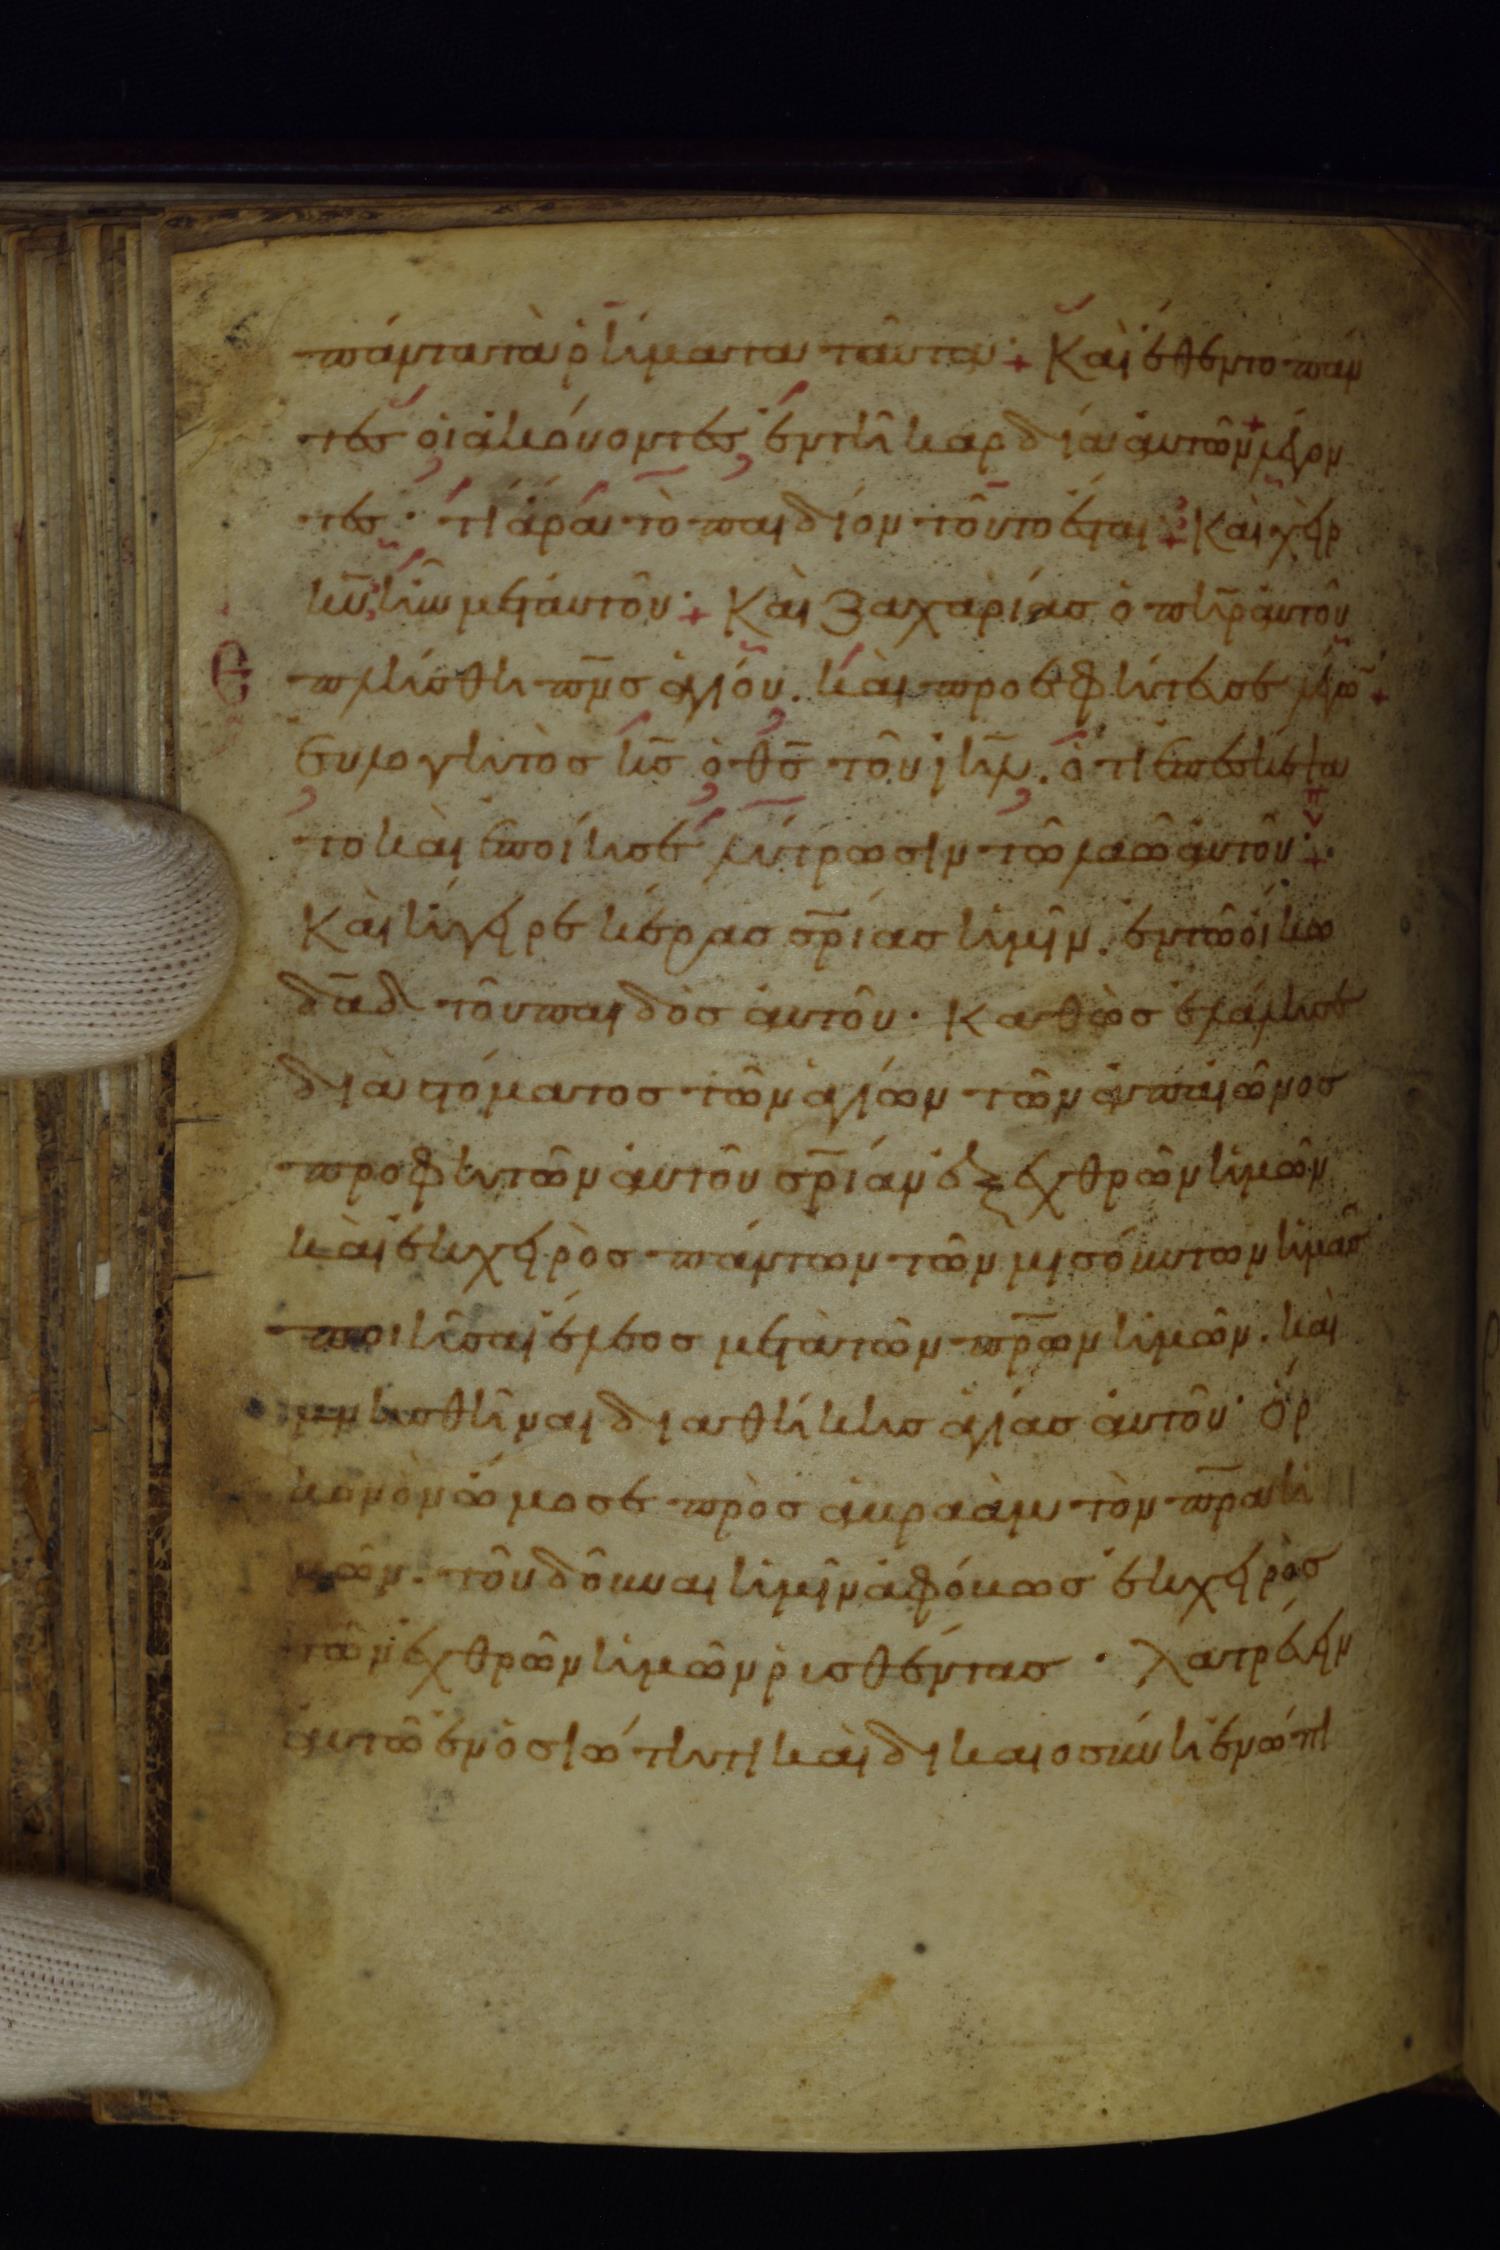 πάντα τὰ ῥήματα ταῦτα· + Καὶ ἔθεντο πάν
τες οἱ ἀκούοντες ἐν τῇ καρδία αὐτῶν λέγον
τες· τί ἄρα τὸ παιδίον τοῦτο ἔσται + Καὶ χὲρ
κυ̅ ἦν μετ' αὐτοῦ· + Καὶ Ζαχαρίας ὁ πη̅ρ αὐτοῦ
Ε πλήσθη πν̅ς ἁγίου. καὶ προεφήτευσε λέγω̅ +
Εὐλογητὸς κς̅ ὁ θς̅ τοῦ ιη̅λ. ὅτι ἐπεσκέψα
το καὶ ἐποίησε λύτρωσιν τῶ λαῶ αὐτοῦ· +
Καὶ ἤγειρε κέρας σρ̅ίας ἡμῖν. ἐν τῶ οἴκω
δα̅δ τοῦ παιδὸς αὐτοῦ· Καθὼς ἐλάλησε
διὰ στόματος τῶν ἁγίων τῶν ἀπ' αἰῶνος
προφητῶν αὐτοῦ σρ̅ίαν ἐξ ἐχθρῶν ἡμῶν
καὶ ἐκ χειρὸς πάντων τῶν μισούντων ἡμᾶς
ποιῆσαι ἔλεος μετὰ τῶν πρ̅ων ἡμῶν. καὶ
μνησθῆναι διαθήκης ἁγίας αὐτοῦ· ὅρ
κον ὃν ὤμοσε πρὸς ἀβραὰμ τὸν πρ̅α ἡ
μῶν. τοῦ δοῦναι ἡμῖν ἀφόβως ἐκ χειρὸς
τῶν ἐχθρῶν ἡμῶν ῥισθέντας · λατρεύειν
αὐτῶ ἐν ὁσιώτητι καὶ δικαιοσύνη ἐνώπι